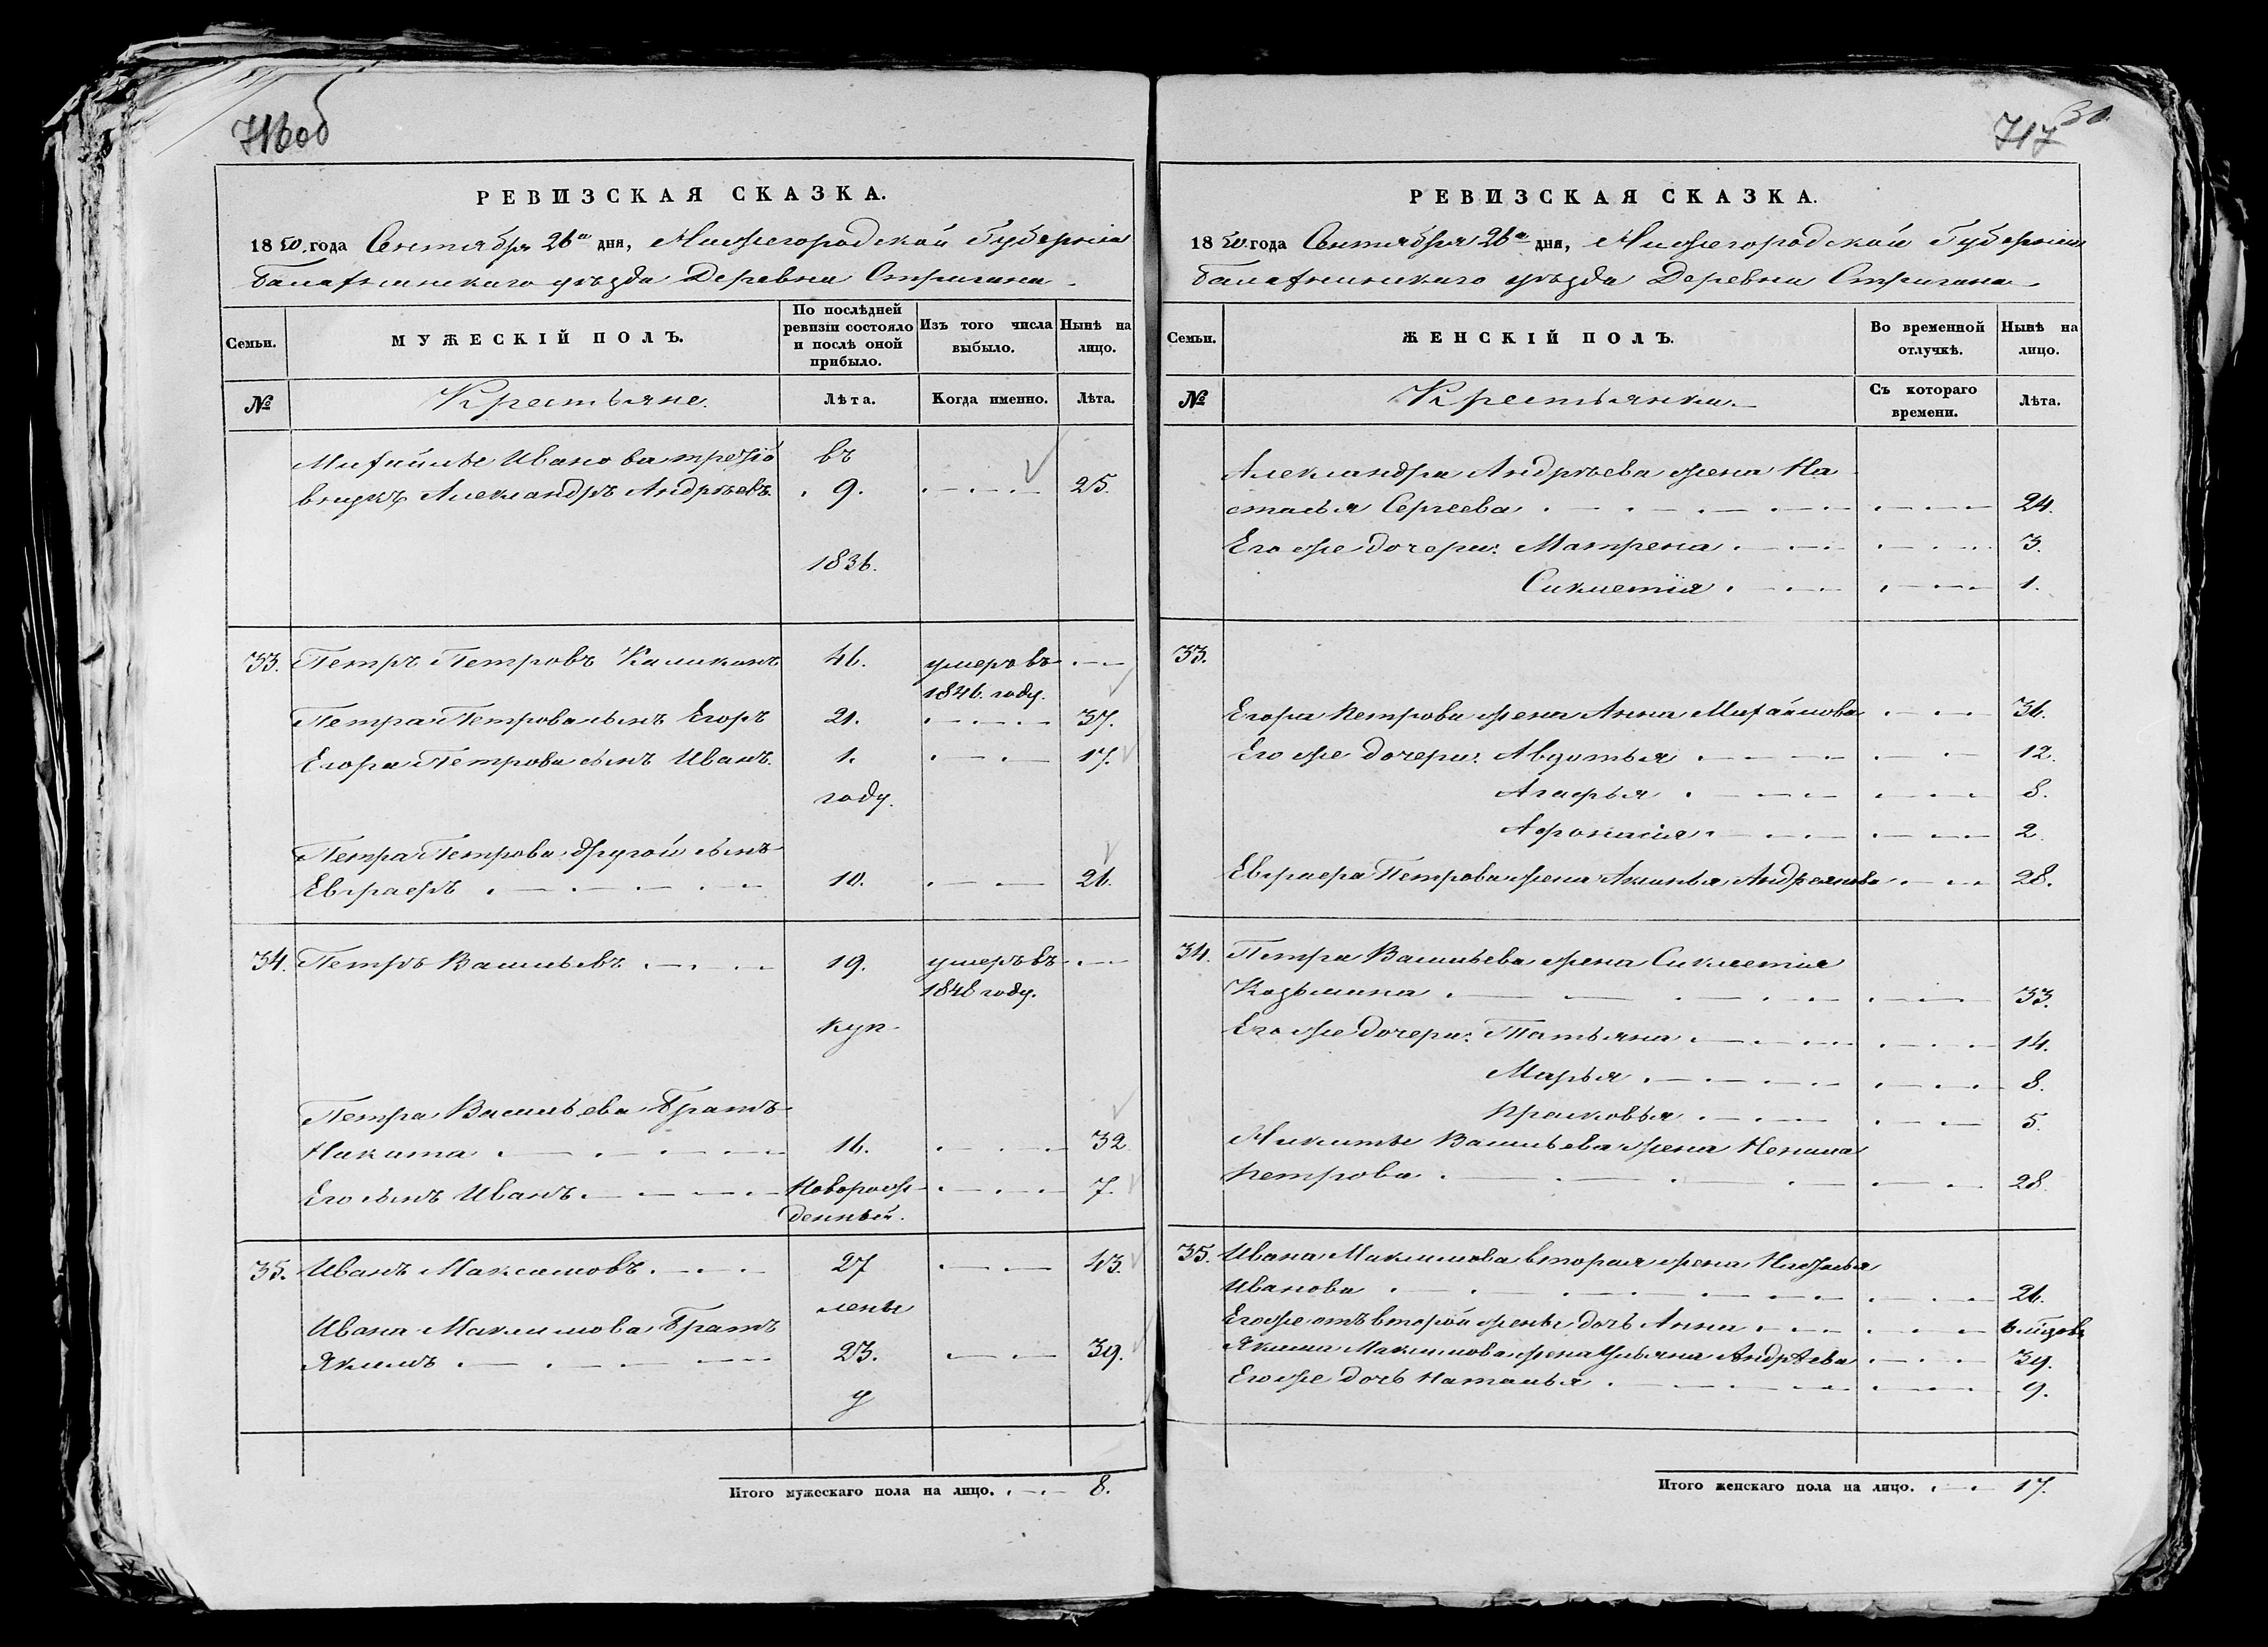 716об
РЕВИЗСКАЯ СКАЗКА.
1850. года Сентября 26го дня, Нижегородской Губернiи
Балахнинскаго уѣзда Деревни Стригина.
Семьи.
МУЖЕСКІЙ ПОЛЪ.
По послѣдней ревизіи состояло и послѣ оной прибыло.
Изъ того числа выбыло.
Нынѣ на лицо.
№
Крестьяне.
Лѣта.
Когда именно.
Лѣта.
Михайлы Иванова третiй въ
внукъ Александръ Андрѣевъ. 9. 25.
1836.
33. Петръ Петровъ 46. умеръ въ
1846. году.
Петра Петрова сынъ Егоръ 21. 37.
Егора Петрова сынъ Иванъ. 1. 17.
году.
Петра Петрова другой сынъ
Евграфъ 10. 26.
34. Петръ Васильевъ 19. умеръ въ
1848 году.
куп
Петра Васильева Братъ
Никита 16. 32
Его сынъ Иванъ. Новорож
денный. 7.
35. Иванъ Максимовъ. 27 43.
Ивана Максимова Братъ
Якимъ 23. 39.
у
Итого мужескаго пола на лицо. 8.
717
РЕВИЗСКАЯ СКАЗКА.
1850. года Сентября 26го дня, Нижегородской Губернiи
Балахнинскаго уѣзда Деревни Стригина.
Семьи.
ЖЕНСКІЙ ПОЛЪ.
Во временной отлучкѣ.
Нынѣ на лицо.
№
Крестьянки.
Съ котораго времени.
Лѣта.
Александра Андрѣева жена На
талья Сергеева 24.
Его же дочери: Матрена 3.
Сиклетiя 1.
33.
Егора Петрова жена Анна Михайлова 36.
Его же дочери: Авдотья 12.
Агафья 8.
Афонасiя 2.
Евграфа Петрова жена Акинья Андреянова 28.
34. Петра Васильева жена Сиклетiя
Козьмина 33.
Его же дочери: Татьяна 14.
Марья 8.
Прасковья 5.
Никиты Васильева жена Ненила
Петрова 28.
35. Ивана Максимова вторая жена
Иванова 26.
Его же отъ второй жены дочь Анна
Якима Максимова жена Ульяна Андрѣева 39.
Его же дочь Наталья 9.
Итого женскаго пола на лицо. 17.